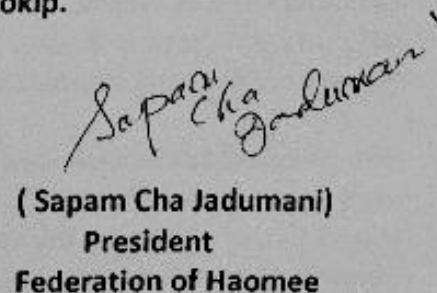 okip.
Sapam Cha Jadumani
( Sapam Cha Jadumani)
President
Federation of Haomee